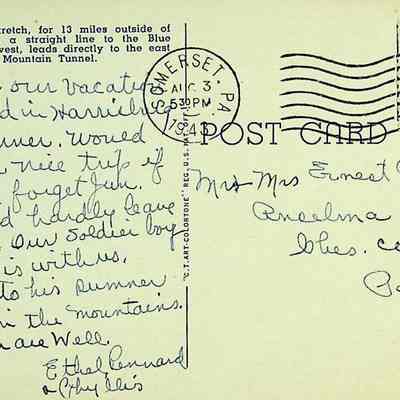 retch, for 13 miles outside of
a straight line to the Blue
west, leads directly to the east
Mountain Tunnel.
our Vacation
d in Harrisburg
nner. Would
nice trip if
forget Jim.
d hardly leave
Our Soldier boy
is with us.
to his summer
in the mountains.
are Well.
Ethel Lennard
& Phyllis
"C.T. ART-COLORTONE" REG. U.S. PAT. OFF.
SOMERSET, PA.
AUG 3
530PM
1943
POST CARD
Mr & Mrs Ernest
Anselma
Ches. Co
Pa